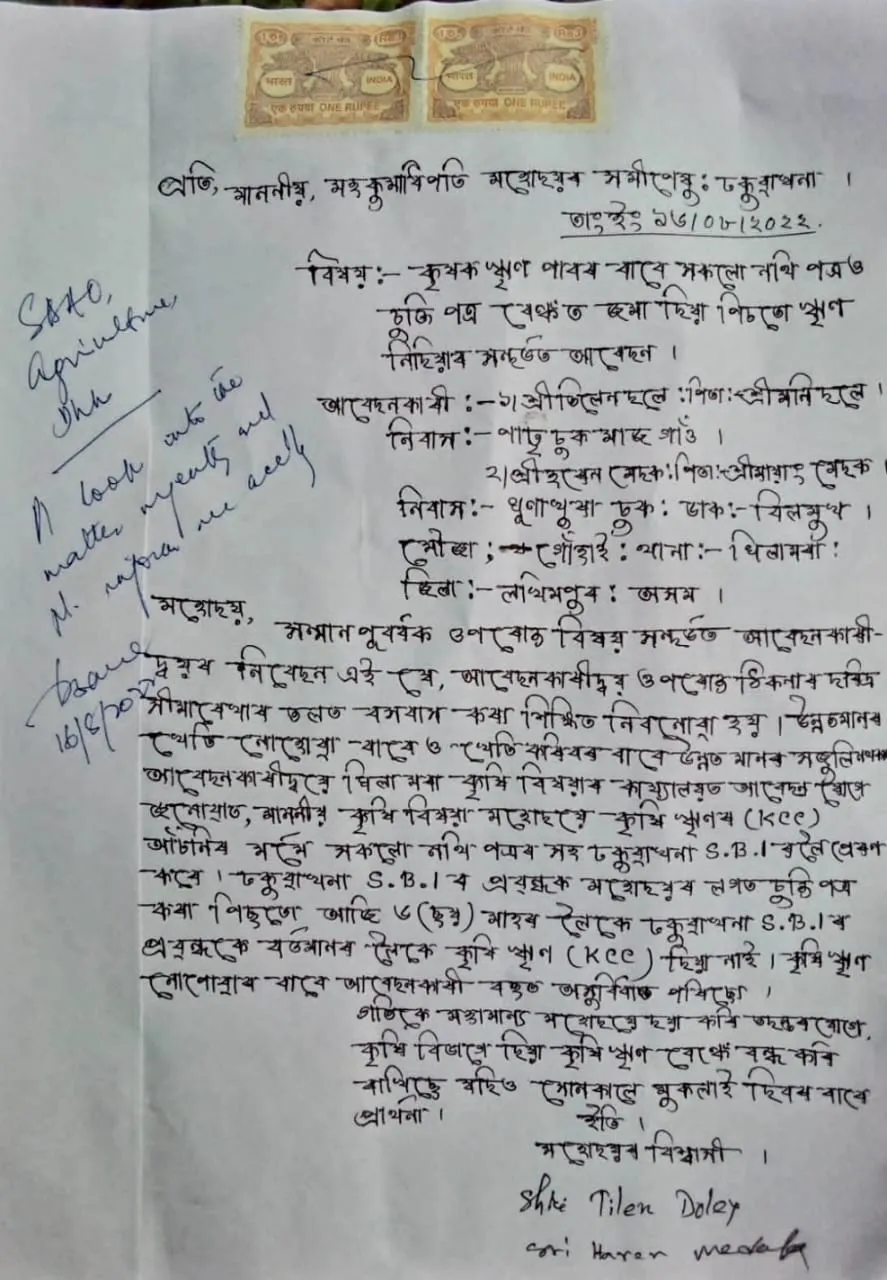 कोर्ट फीस
भारत INDIA
एक रुपया ONE RUPEE
कोर्ट फीस
भारत INDIA
एक रुपया ONE RUPEE
প্ৰতি, মাননীয়, মহকুমাধিপতি মহোদয়ৰ সমীপেষু: ঢকুৱাখনা ।
তাং ইং ১৬/০৮/২০২২.
বিষয়:- কৃষক ঋণ পাবৰ বাবে সকলো নথি পত্ৰ ও
চুক্তি পত্ৰ বেংকত জমা দিয়া পিচতো ঋণ
নিদিয়াৰ সন্দৰ্ভত আবেদন ।
আবেদনকাৰী :- ১) শ্ৰীতিলেন দলে : পিতা: শ্ৰীমনি দলে ।
নিবাস :- পাটু চুক মাজ গাঁও ।
২) শ্ৰীহৰেন মেদক: পিতা: শ্ৰীমায়াং মেদক ।
নিবাস:- ধূণাখুমা চুক: ডাক:- বিলমুখ ।
মৌজা ;- গোঁহাই : থানা:- ঘিলামৰা :
জিলা:- লখিমপুৰ : অসম ।
মহোদয়,
সন্মান পূৰ্বক ওপৰোক্ত বিষয় সন্দৰ্ভত আবেদনকাৰী-
দ্বয়ৰ নিবেদন এই যে, আবেদনকাৰীদ্বয় ওপৰোক্ত ঠিকনাৰ দৰিদ্ৰ
সীমাৰেখাৰ তলত বসবাস কৰা শিক্ষিত নিবনোৱা হয় । উন্নতমানৰ
খেতি নোহোৱা বাবে ও খেতি কৰিবৰ বাবে উন্নত মানৰ সজুলি
আবেদনকাৰীদ্বয়ে ঘিলা মৰা কৃষি বিষয়াৰ কাৰ্য্যালয়ত আবেদন যোগে
জনোৱাত, মাননীয় কৃষি বিষয়া মহোদয়ে কৃষি ঋণৰ (KCC)
আঁচনিৰ মৰ্মে সকলো নথি পত্ৰৰ সহ ঢকুৱাখনা S.B.I লৈ প্ৰেৰণ
কৰে । ঢকুৱাখনা S.B.I ৰ প্ৰবন্ধক মহোদয়ৰ লগত চুক্তি পত্ৰ
কৰা পিছতো আজি ৬ (ছয়) মাহৰ লৈকে ঢকুৱাখনা S.B.I ৰ
প্ৰবন্ধকে বৰ্তমানৰ লৈকে কৃষি ঋণ (KCC) দিয়া নাই । কৃষি ঋণ
নোপোৱাৰ বাবে আবেদনকাৰী বহুত অসুবিধাত পৰিছো ।
গতিকে মহামান্য মহোদয়ে দয়া কৰি তদন্তৰ যোগে,
কৃষি বিভাগে দিয়া কৃষি ঋণ বেংকে বন্ধ কৰি
ৰাখিছে যদিও সোনকালে মুকলাই দিবৰ বাবে
প্ৰাৰ্থনা । ইতি ।
মহোদয়ৰ বিশ্বাসী ।
Shri Tilen Doley
Sri Haren Medak
SDAO,
Agriculture,
Dhk
A look into the
matter urgently and
16/8/2022